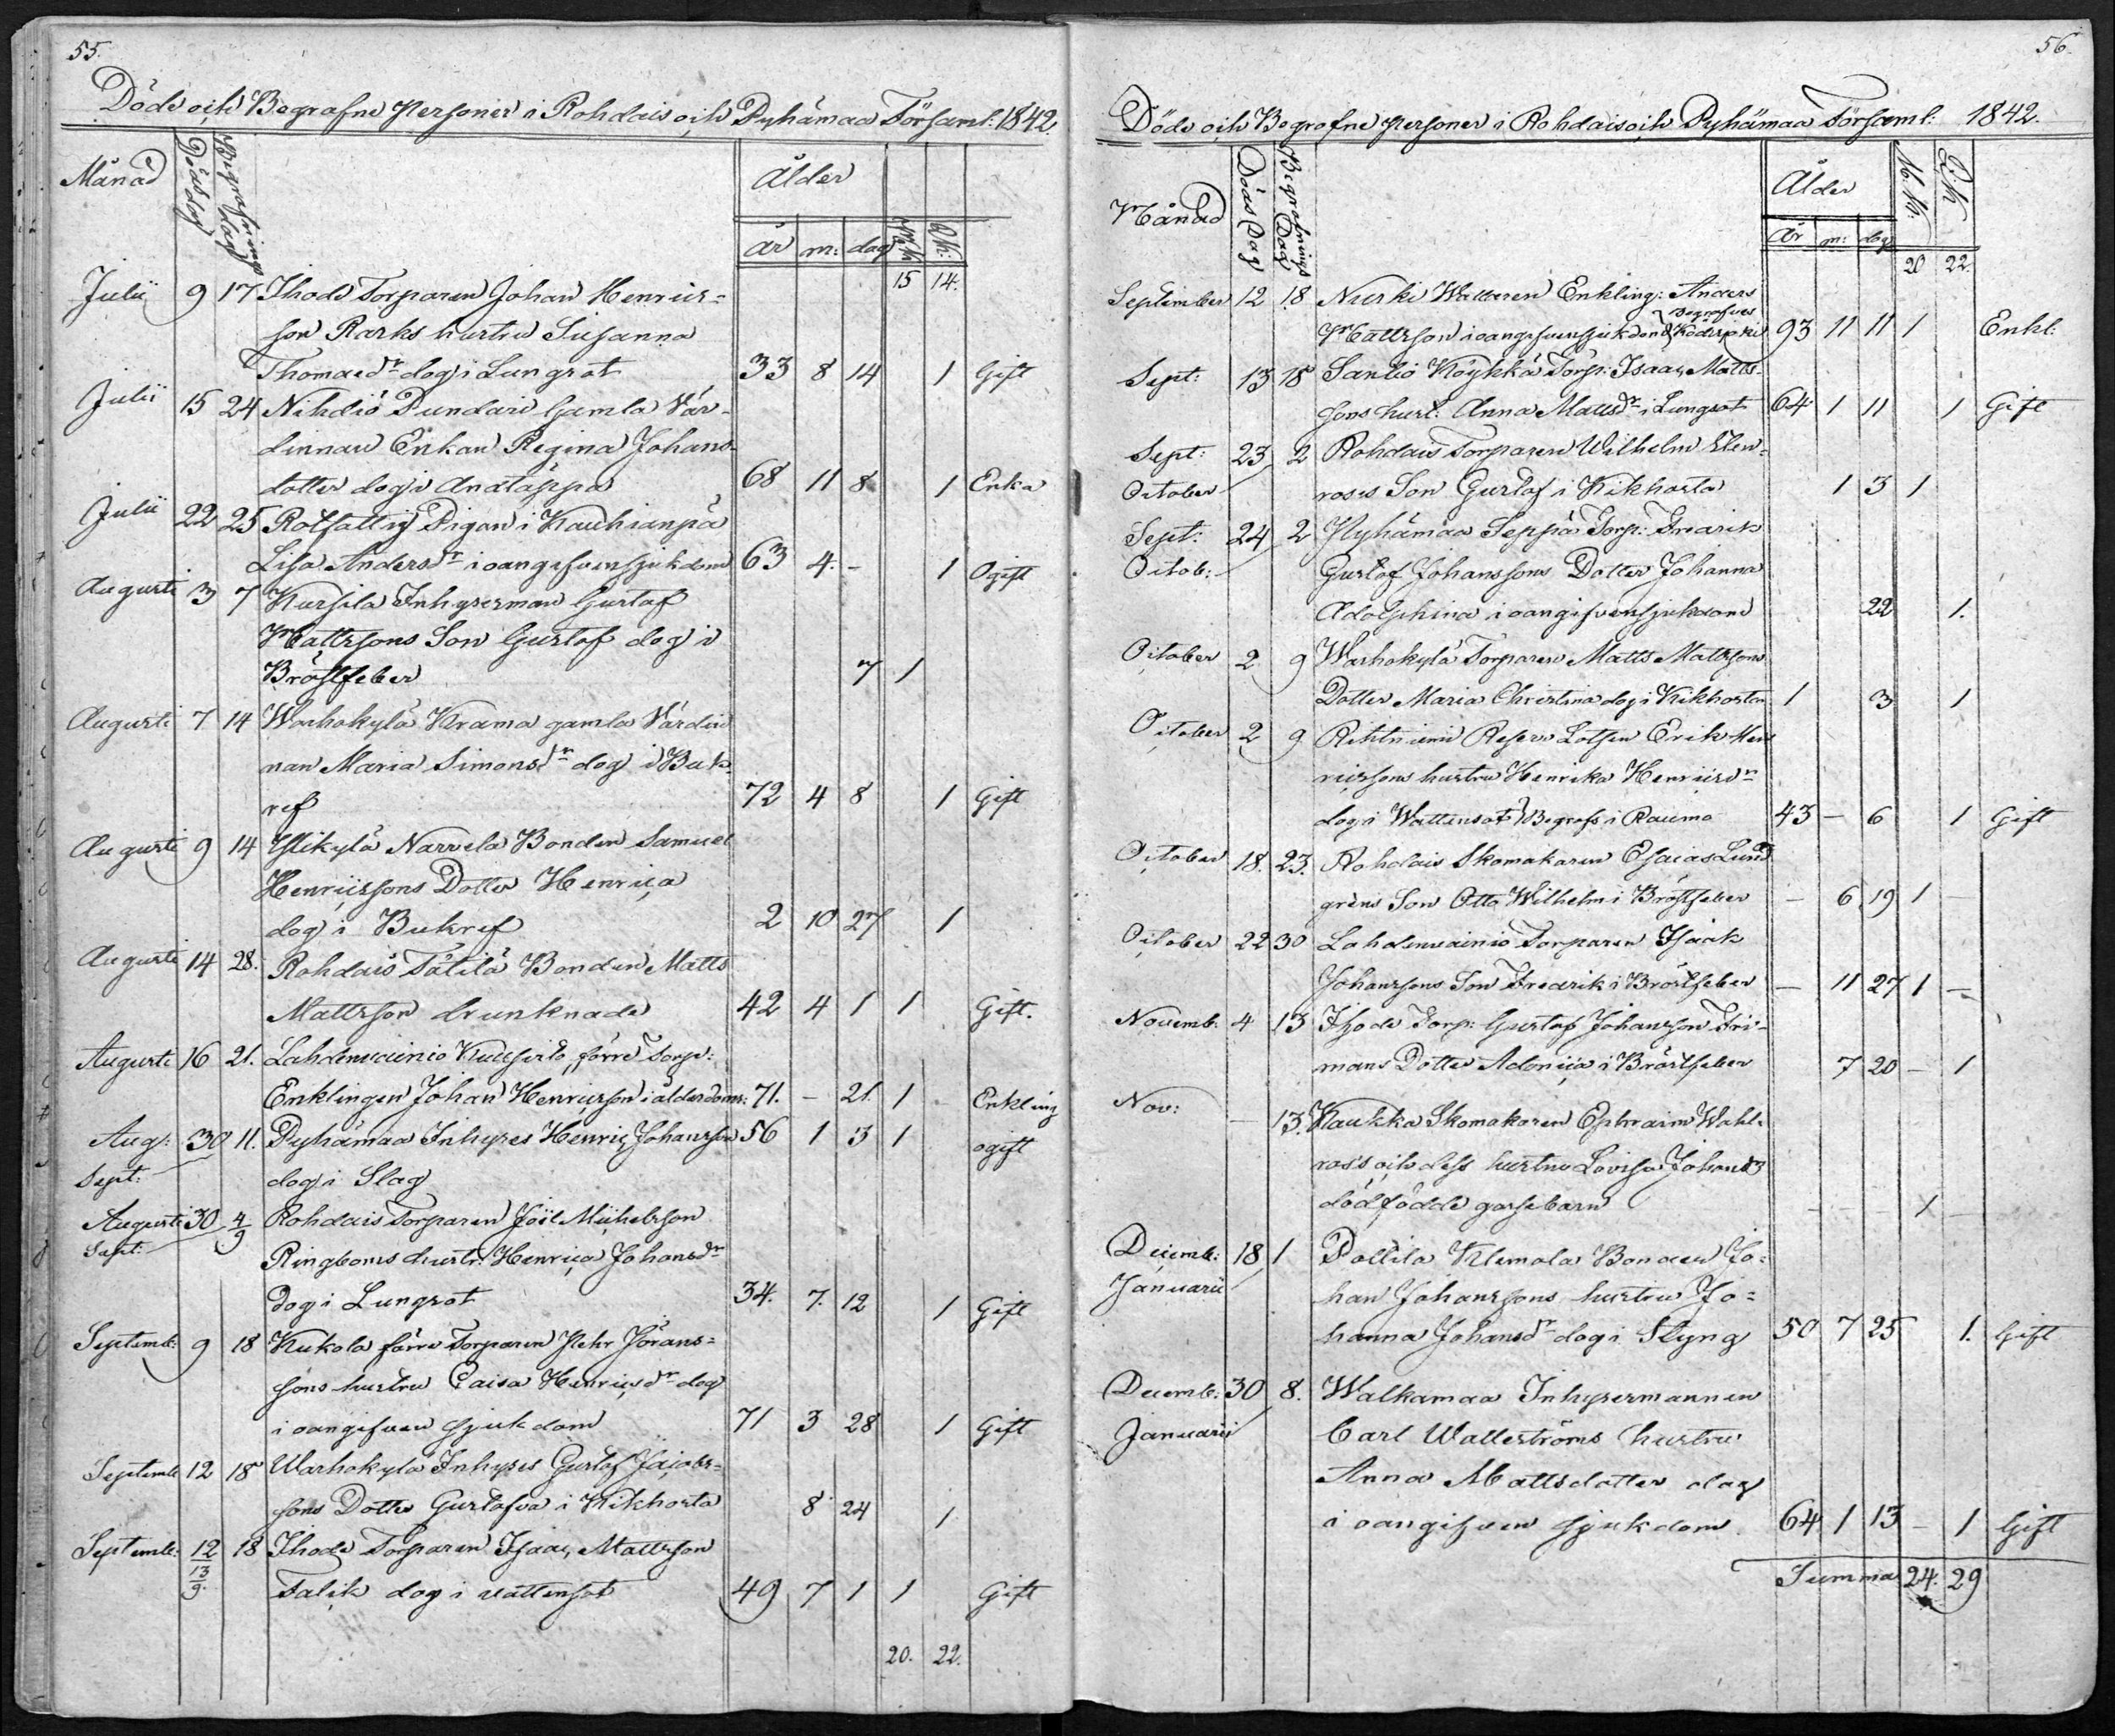 55.
Döde och Begrafne Personer i Rohdais och Pyhämaa Församl: 1842.
Månad Dödsdag Begrafnings dag Ålder
år m: dag Mk Qk:
15 14.
Julii 9 17 Ihode Torparen Johan Henrics=
son Rarks hustru Susanna
Thomaedr dog i Lungsot 33 8 14 1 Gift
Julii 15 24 Nihdiö Pundari Gamla Vär-
dinnan Enkan Regina Johans-
dotter dog i Andtäppa 68 11 8 1 Enka
Julii 22 25 Rotfattig Pigan i Kauhianpä
Lisa Andersdr i oangifven sjukdom 63 4. - 1 Ogift
Augusti 3 7 Kursila Inhyserman Gustaf
Mattssons Son Gustaf dog i
Bröstfeber 7 1
Augusti 7 14 Warhokylä Krama gamla Värdin
nan Maria Simonsdr dog i Buk-
ref 72 4 8 1 Gift
Augusti 9 14 Ylikylä Narvela Bonden Samuel
Henricssons Dotter Henrica
dog i Bukref 2 10 27 1
Augusti 14 28. Rohdais Tätilä Bonden Matts
Mattsson drunknade 42 4 1 1 Gift.
Augusti 16 21. Lahdenvainio förre Torp:
Enklingen Johan Henricsson i ålderdoms: 71. - 21. 1 Enkling
Aug: 30 11. Pyhämaa Inhyses Henric Johansson 56 1 3 1 ogift
Sept: dog i Slag
Augusti 30 4/9 Rohdais Torparen Joël Michelsson
Sept: Ringboms hustr: Henrica Johansdr
dog i Lungsot 34. 7. 12 1 Gift
Septemb: 9 18 Kukola förre Torparen Pehr Jörans=
sons hustru Caisa Henricsdr dog
i oangifven sjukdom 71 3 28 1 Gift
Septemb 12 18 Warhokylä Inhyses Gustaf Jacobs=
sons Dotter Gustafva i Kikhosta 8 24 1
Septemb: 12 18 Ihode Torparen Isaac Mattsson
13/9. Falck dog i vattensot 49 7 1 1 Gift
20. 22.
56.
Döde och Begrafne personer i Rohdais och Pyhämaa Församl: 1842.
Månad Döds Dag Begrafnings Dag Ålder M.k. Q.k
år m: dag
20 22.
September 12 18. Nurki Wattaren Enkling: Anders
Begrafves
Mattsson i oangifven sjukdom 93 11 11 1 Enkl:
Sept: 13 18 Santiö Köykkä Torp: Isaac Matts-
sons hust: Anna Mattsdr i Lungsot 64 1 11 1 Gift
Sept: 23 2 Rohdais Torparen Wilhelm Elen-
October roses Son Gustaf i Kikhosta 1 3 1
Sept: 24 2 Pyhämaa Seppä Torp: Fredrik
Octob: Gustaf Johanssons Dotter Johanna
Adolphina i oangifven sjukdom 22 1.
October 2 9 Warhokylä Torparen Matts Mattssons
Dotter Maria Christina dog i Kikhosta 1 3 1
October 2 9 Rihtniemi Reserv Lotsen Erik Hen
ricssons hustru Henrika Henricsdr
dog i Wattensot Begrafs i Raumo 43 - 6 1 Gift
October 18. 23. Rohdais Skomakaren Esaias Lund
gréns Son Otto Wilhelm i Bröstfeber - 6 19 1 -
October 22 30 Lahdenvainio Torparen Isaak
Johanssons Son Fredrik i Bröstfeber - 11 27 1 -
Novemb: 4 13 Ihode Torp: Gustaf Johansson Fri-
mans Dotter Adonica i Bröstfeber 7 20 - 1
Nov: - 13. Kaukka Skomakaren Ephraim Wahl-
ross och dess hustru Lovisa Johansd
dödfödde gossebarn - - - 1
Decemb: 18 1 Pollila Klemola Bonden Jo=
Januarii han Johanssons hustru Jo=
hanna Johansdr dog i Styng 50 7 25 1. Gift
Decemb: 30 8. Walkamaa Inhysermannen
Januarii Carl Wallströms hustru
Anna Mattsdotter dog
i oangifven sjukdom 64 1 13 - 1 Gift
Summa 24. 29